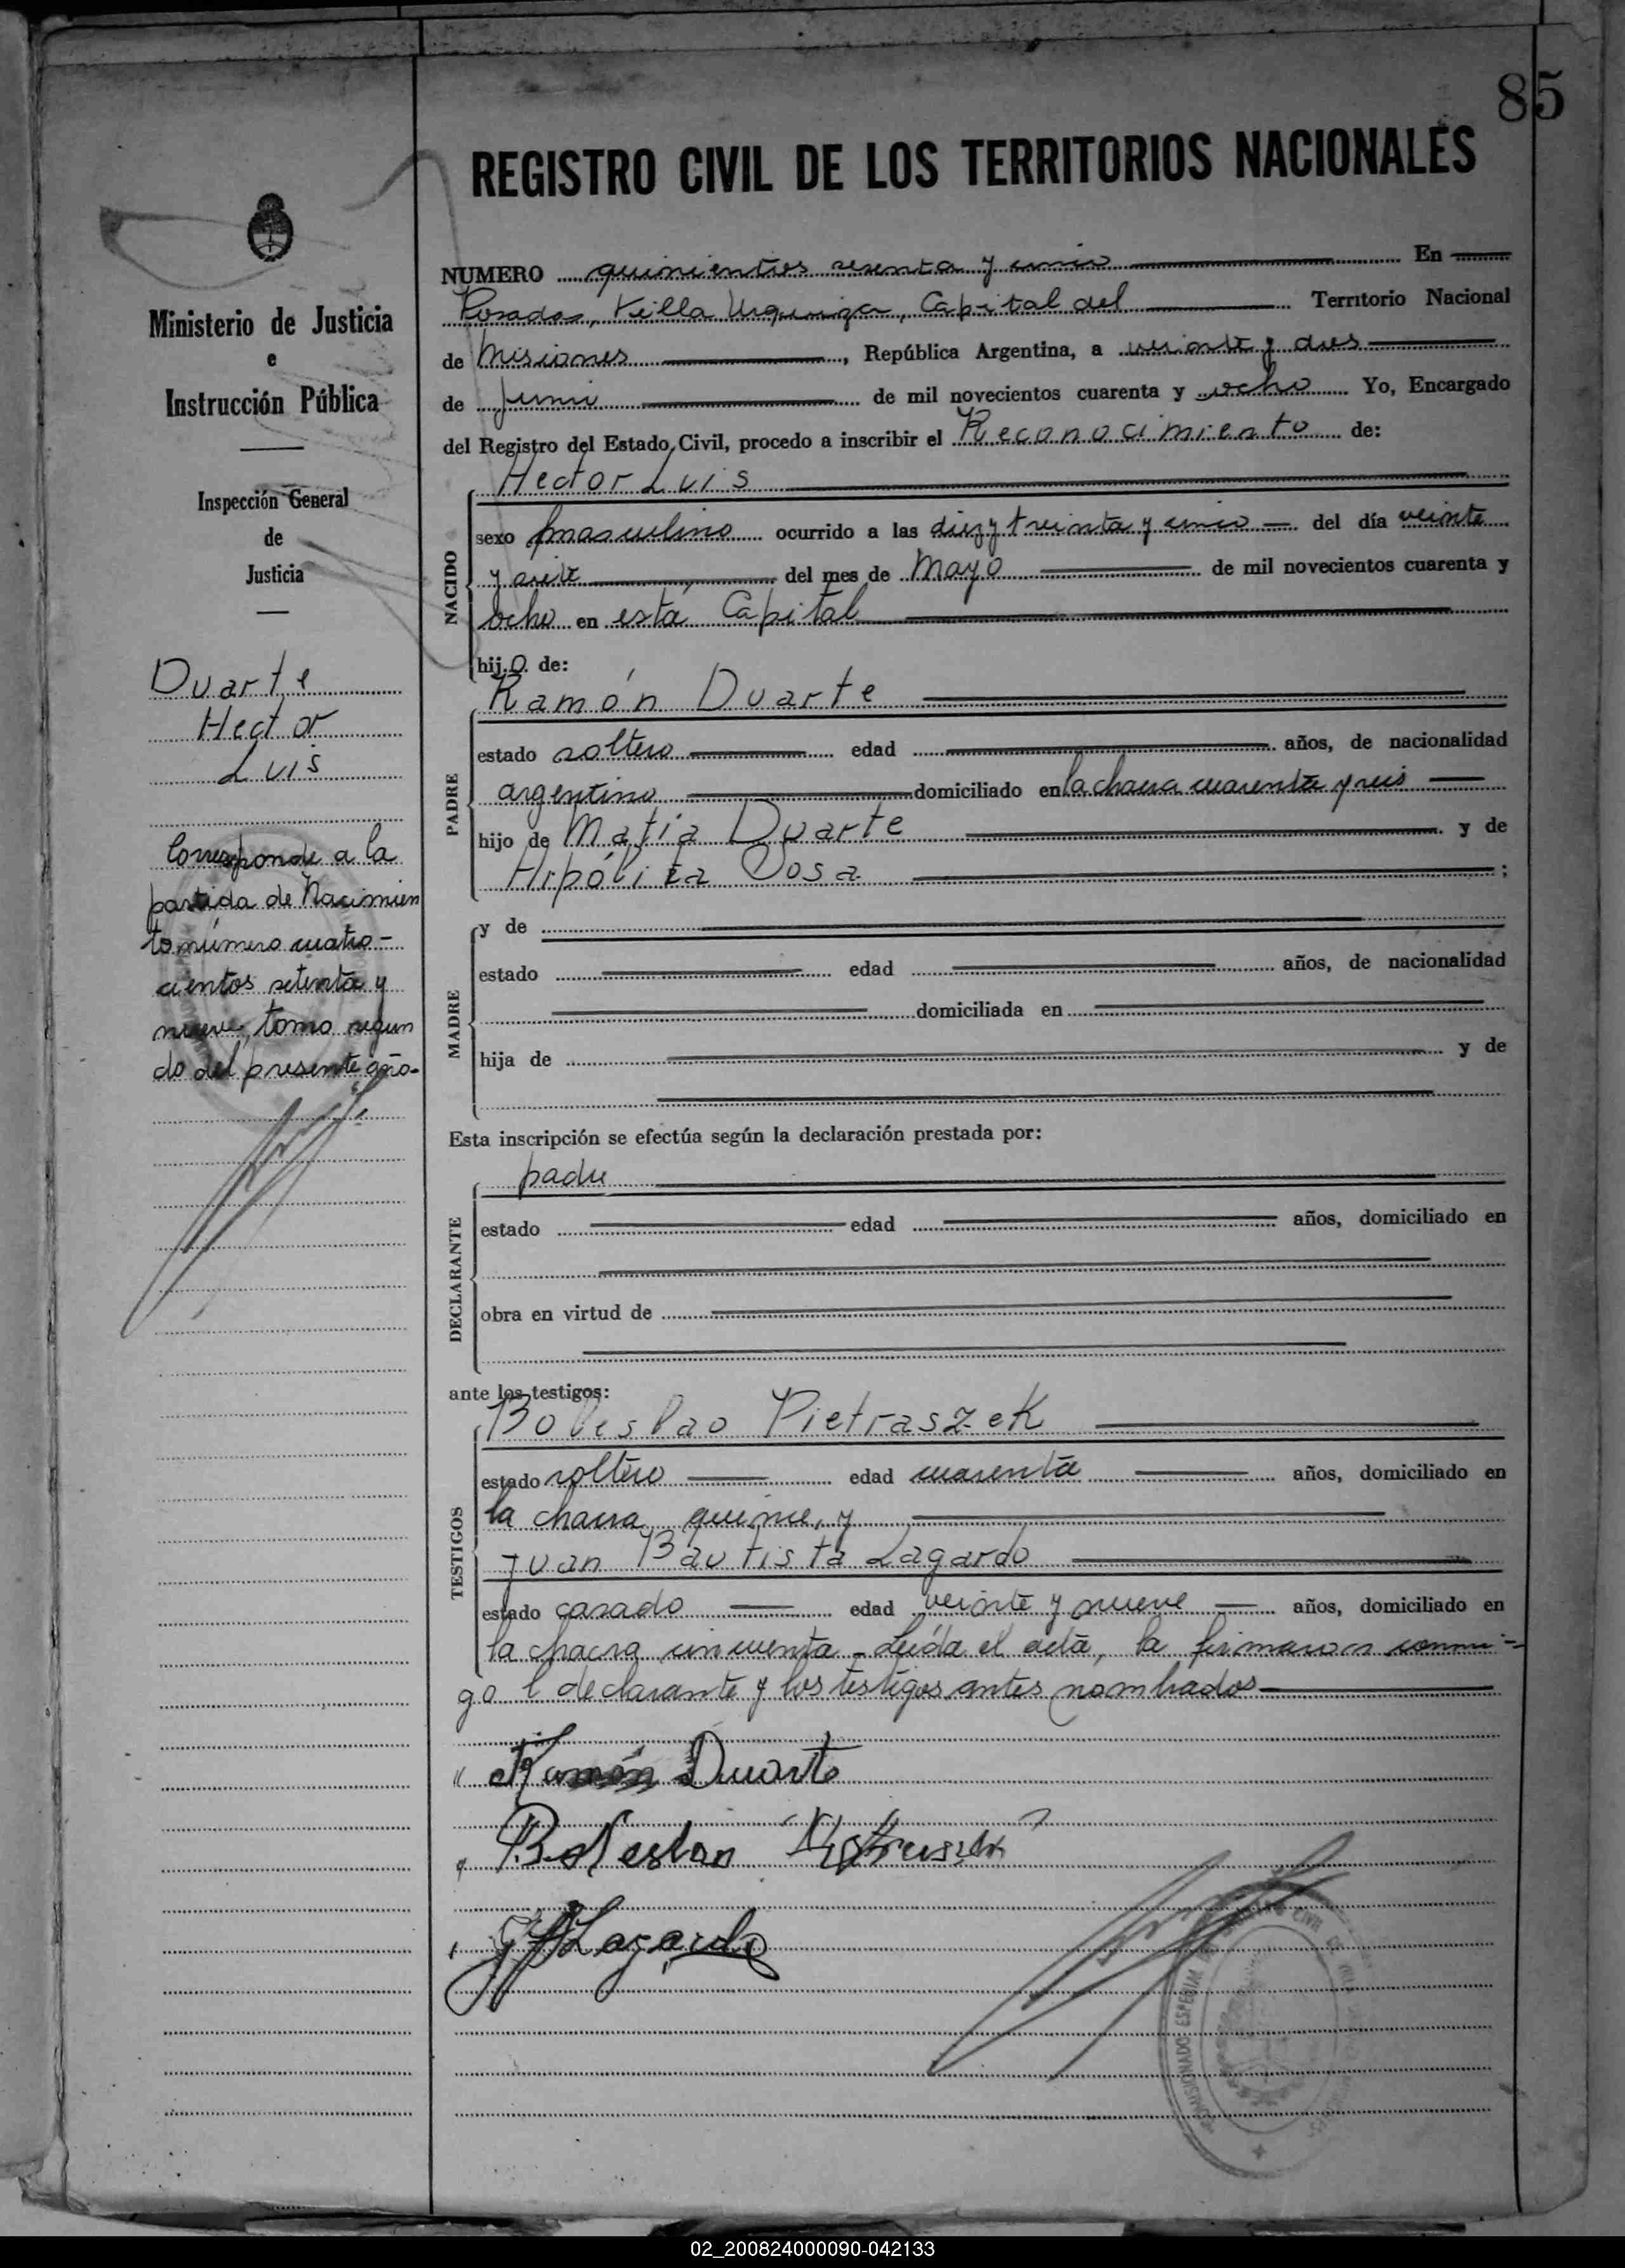 85
REGISTRO CIVIL DE LOS TERRITORIOS NACIONALES
Ministerio de Justicia
e
Instrucción Pública
Inspección General
de
Justicia
Duarte
Hector
Luis
Corresponde a la
partida de Nacimien
to número cuatro-
cientos setenta y
nueve, tomo segun
do del presente año-
NUMERO quinientos sesenta y cinco En
Posadas, Villa Urquiza, Capital del Territorio Nacional
de Misiones, República Argentina, a veinte y dos
de junio de mil novecientos cuarenta y ocho Yo, Encargado
del Registro del Estado Civil, procedo a inscribir el Reconocimiento de:
Hector Luis
NACIDO
sexo masculino ocurrido a las diez y treinta y cinco del día veinte
y siete del mes de Mayo de mil novecientos cuarenta y
ocho en esta Capital
hijo de:
Ramón Duarte
PADRE
estado soltero edad años, de nacionalidad
argentino domiciliado en la chacra cuarenta y seis
hijo de Matía Duarte y de
Hipólita Sosa ;
MADRE
y de
estado edad años, de nacionalidad
domiciliada en
hija de y de
Esta inscripción se efectúa según la declaración prestada por:
padre
DECLARANTE
estado edad años, domiciliado en
obra en virtud de
ante los testigos:
Boleslao Pietraszek
TESTIGOS
estado soltero edad cuarenta años, domiciliado en
la chacra quince, y
Juan Bautista Lagardo
estado casado edad veinte y nueve años, domiciliado en
la chacra cincuenta - Leída el acta, la firmaron conmi-
go l declarante y los testigos antes nombrados
Ramón Duarte
Boleslao Pietraszek
J B Lagardo
02_200824000090-042133